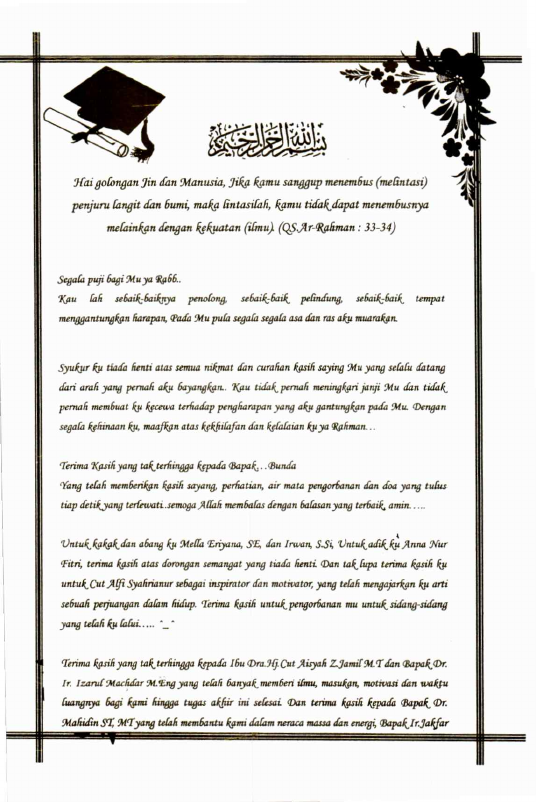 بسم الله الرحمن الرحيم
Hai golongan Jin dan Manusia, Jika kamu sanggup menembus (melintasi)
penjuru langit dan bumi, maka lintasilah, kamu tidak dapat menembusnya
melainkan dengan kekuatan (ilmu). (QS.Ar-Rahman : 33-34)
Segala puji bagi Mu ya Rabb..
Kau lah sebaik-baiknya penolong, sebaik-baik pelindung, sebaik-baik tempat
menggantungkan harapan, Pada Mu pula segala segala asa dan ras aku muarakan.
Syukur ku tiada henti atas semua nikmat dan curahan kasih saying Mu yang selalu datang
dari arah yang pernah aku bayangkan.. Kau tidak pernah meningkari janji Mu dan tidak
pernah membuat ku kecewa terhadap pengharapan yang aku gantungkan pada Mu. Dengan
segala kehinaan ku, maafkan atas kekhilafan dan kelalaian ku ya Rahman...
Terima Kasih yang tak terhingga kepada Bapak...Bunda
Yang telah memberikan kasih sayang, perhatian, air mata pengorbanan dan doa yang tulus
tiap detik yang terlewati..semoga Allah membalas dengan balasan yang terbaik, amin.....
Untuk kakak dan abang ku Mella Eriyana, SE, dan Irwan, S.Si, Untuk adik ku Anna Nur
Fitri, terima kasih atas dorongan semangat yang tiada henti. Dan tak lupa terima kasih ku
untuk Cut Alfi Syahrianur sebagai inspirator dan motivator, yang telah mengajarkan ku arti
sebuah perjuangan dalam hidup. Terima kasih untuk pengorbanan mu untuk sidang-sidang
yang telah ku lalui..... ^_^
Terima kasih yang tak terhingga kepada Ibu Dra.Hj.Cut Aisyah Z.Jamil M.T dan Bapak Dr.
Ir. Izarul Machdar M.Eng yang telah banyak memberi ilmu, masukan, motivasi dan waktu
luangnya bagi kami hingga tugas akhir ini selesai. Dan terima kasih kepada Bapak Dr.
Mahidin ST, MT yang telah membantu kami dalam neraca massa dan energi, Bapak Ir.Jakfar